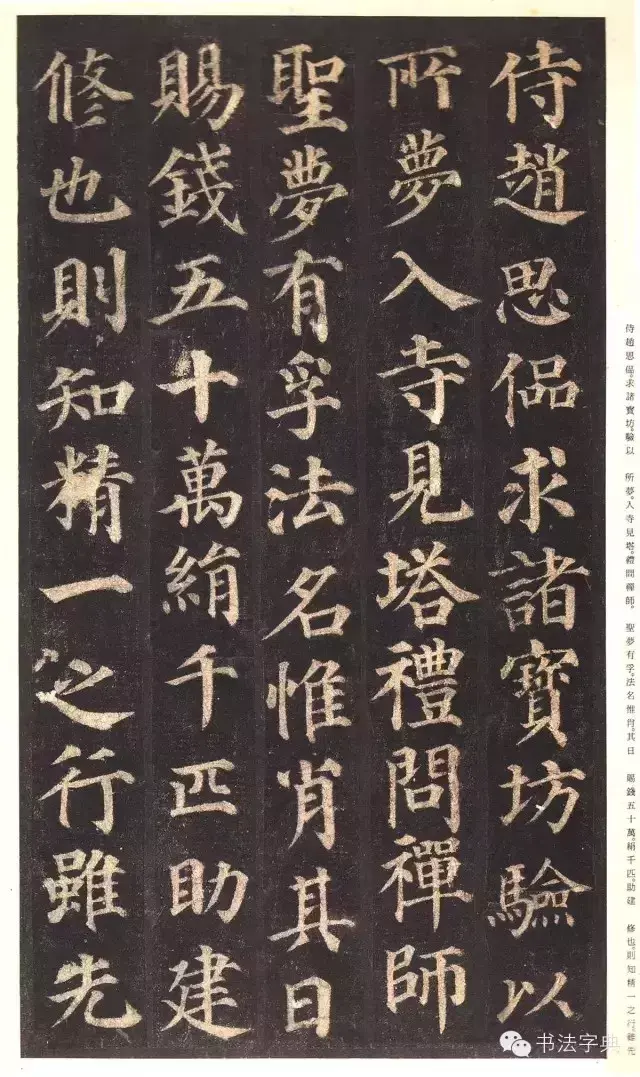 侍趙思偘求諸寶坊驗以
所夢入寺見塔禮問禪師
聖夢有孚法名惟肖其日
賜錢五十萬絹千匹助建
修也則知精一之行雖先
侍趙思偘。求諸寶坊。驗以　所夢。入寺見塔。禮問禪師。　聖夢有孚。法名惟肖。其日　賜錢五十萬。絹千匹。助建　修也。則知精一之行。雖先
书法字典